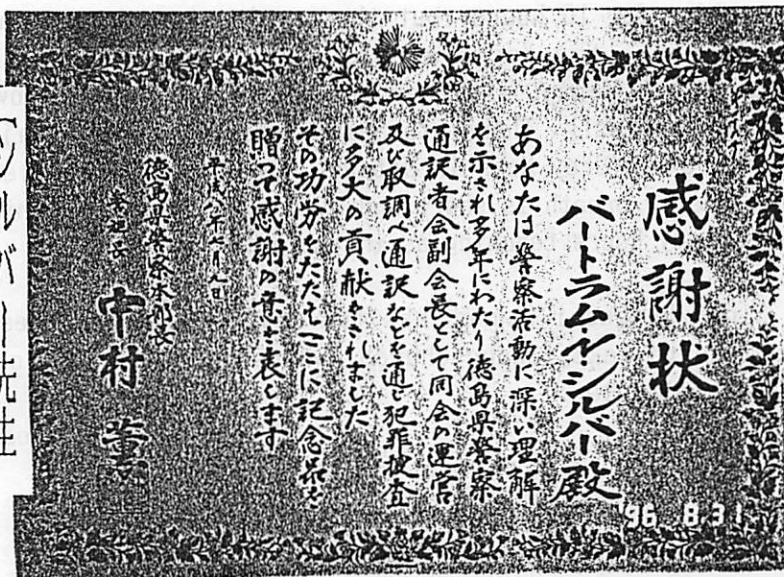 感謝状
バートラム・イ・シルバー殿
あなたは警察活動に深い理解
を示され多年にわたり徳島県警察
通訳者会副会長として同会の運営
及び取調べ通訳などを通じ犯罪捜査
に多大の貢献をされました
その功労をたたえここに記念品を
贈って感謝の意を表します
平成八年七月九日
徳島県警察本部長
警視長 中村 薫
シルバー先生
'96 8.31